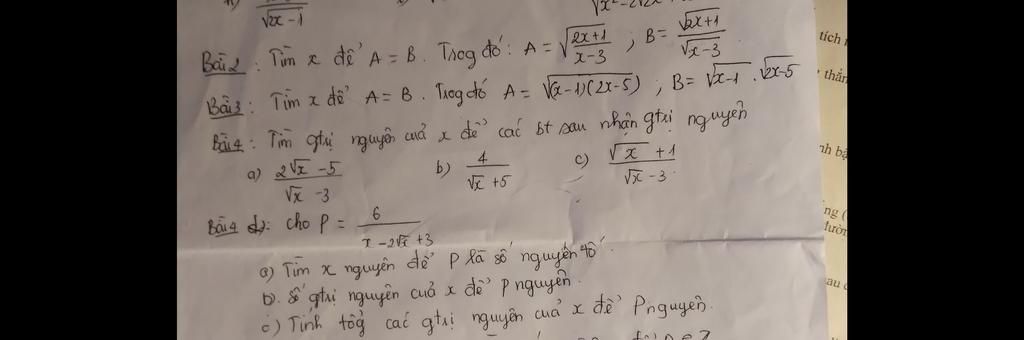 √2x-1
Bài 2: Tìm x để A = B. Trog đó: A = √(2x+1)/(x-3) ; B = √2x+1/√x-3
Bài 3: Tìm x để A = B. Trog đó A = √(x-1)(2x-5) ; B = √x-1 . √2x-5
Bài 4: Tìm gtrị nguyên cuả x để các bt sau nhận gtrị nguyên
a) 2√x -5/√x -3 b) 4/√x +5 c) √x +1/√x -3
Bài 4 d): cho P = 6/x -2√x +3
a) Tìm x nguyên để P là số nguyên tố
b). Số gtrị nguyên cuả x để P nguyên.
c) Tính tổg các gtrị nguyên cuả x để P nguyên.
tích
thẳn
nh bậ
ng (
đườn
au